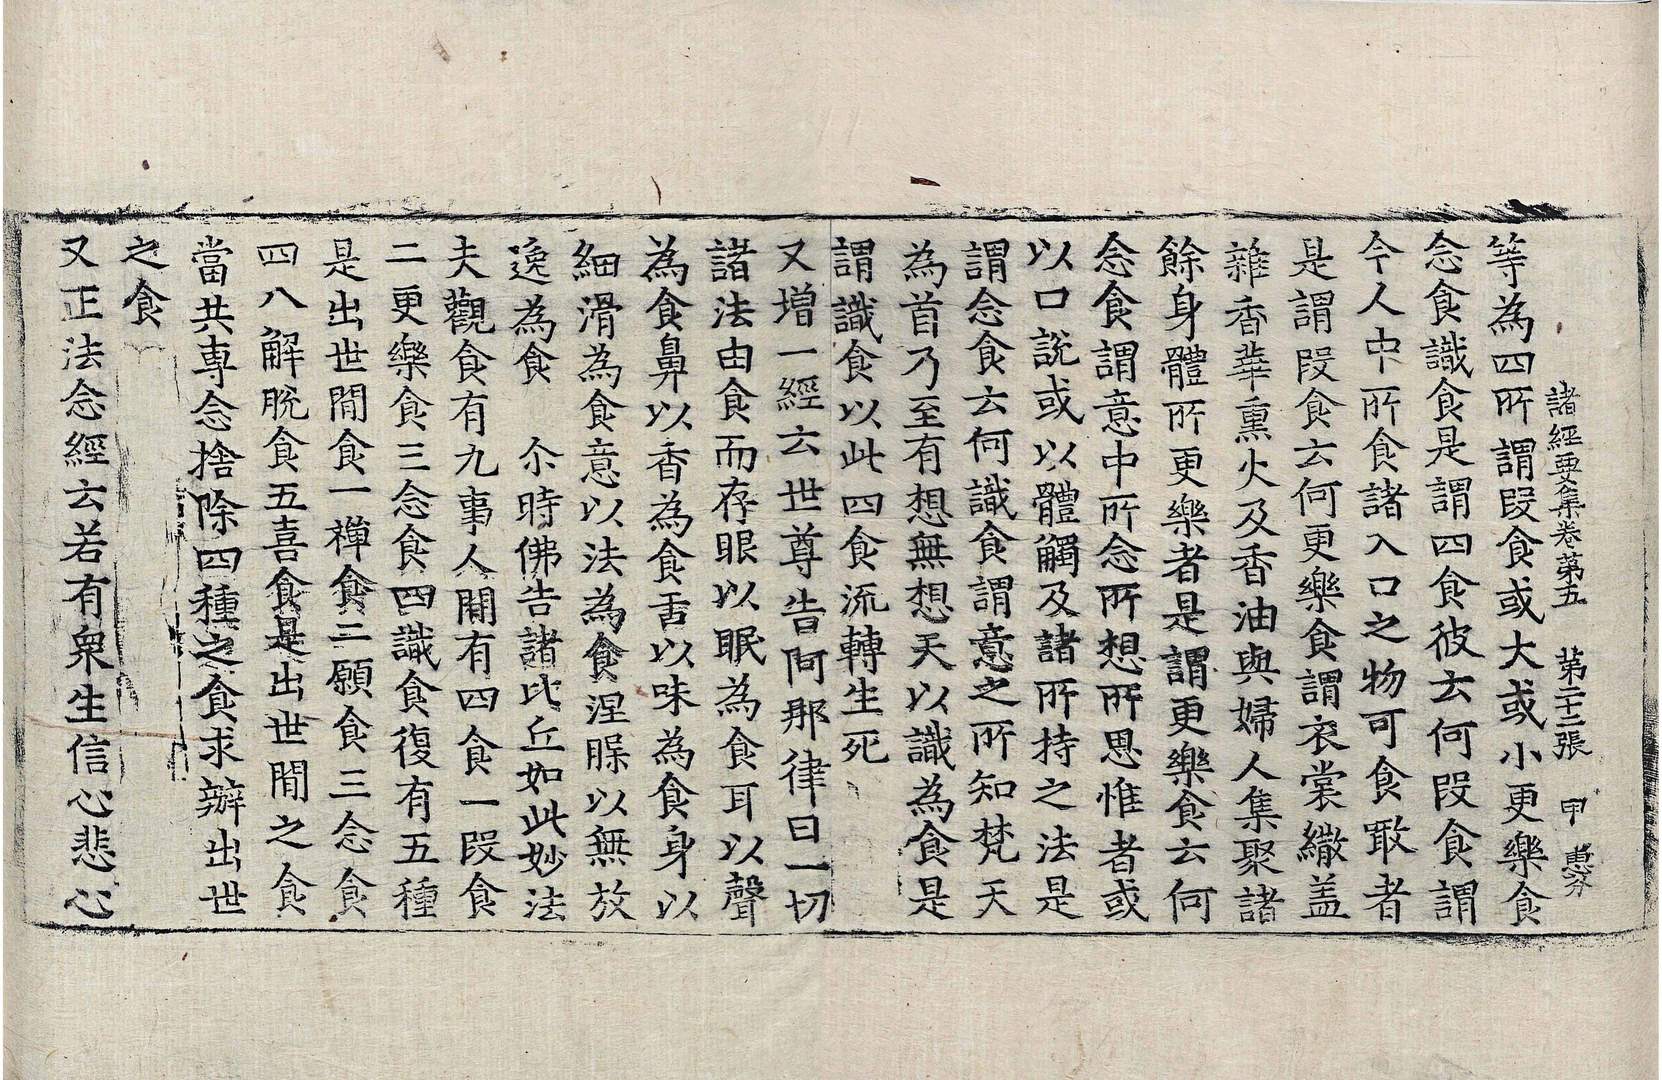 諸經要集卷第五 第二十二張 甲 惠芬
等為四所謂段食或大或小更樂食
念食識食是謂四食彼云何段食謂
今人中所食諸入口之物可食噉者
是謂段食云何更樂食謂衣裳繖盖
雜香華熏火及香油與婦人集聚諸
餘身體所更樂者是謂更樂食云何
念食謂意中所念所想所思惟者或
以口說或以體觸及諸所持之法是
謂念食云何識食謂意之所知梵天
為首乃至有想無想天以識為食是
謂識食以此四食流轉生死
又增一經云世尊告阿那律曰一切
諸法由食而存眼以眠為食耳以聲
為食鼻以香為食舌以味為食身以
細滑為食意以法為食涅槃以無放
逸為食 尒時佛告諸比丘如此妙法
夫觀食有九事人間有四食一段食
二更樂食三念食四識食復有五種
是出世間食一禪食二願食三念食
四八解脫食五喜食是出世間之食
當共專念捨除四種之食求辦出世
之食
又正法念經云若有衆生信心悲心